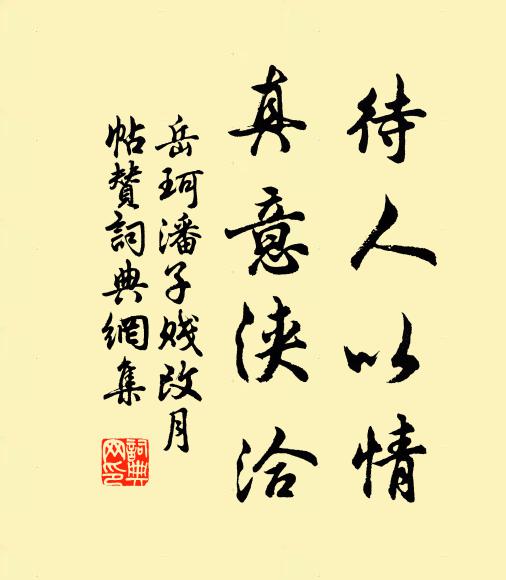 待人以情
真意浹洽
岳珂潘子賤改月
帖贊詞典網集
詞典网印